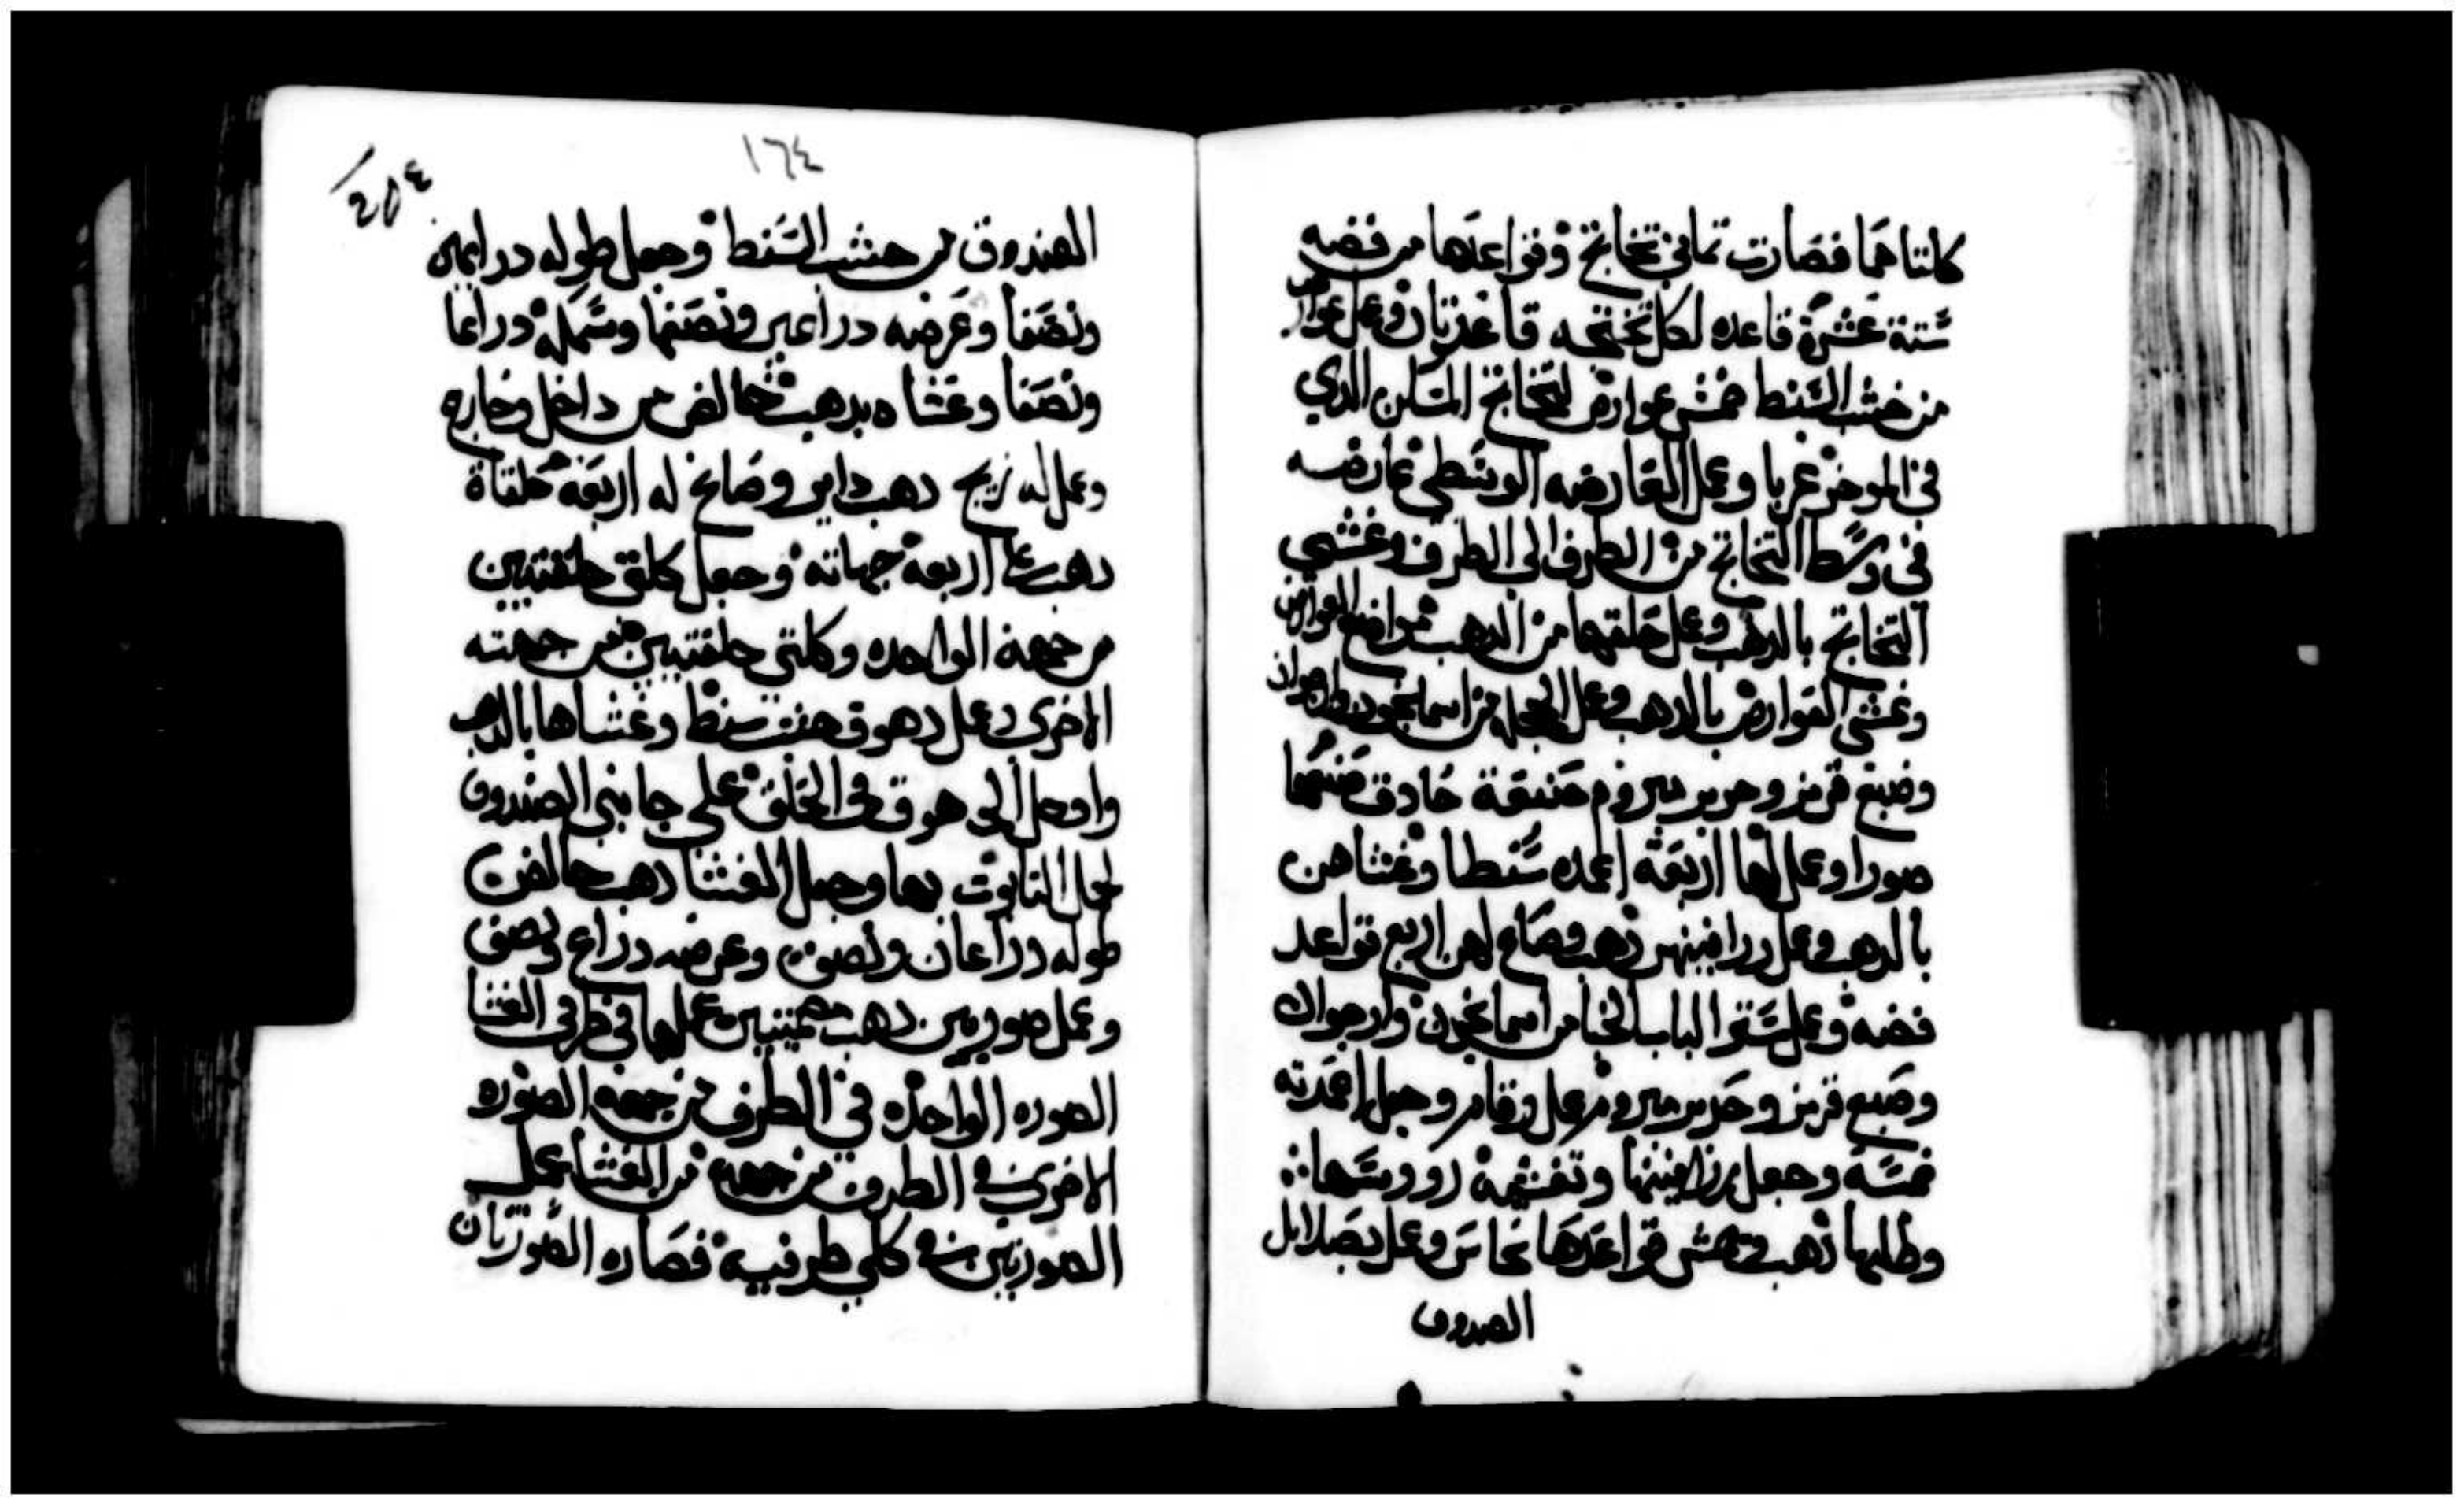 كلتاهما فصارت تماني تخاتج وقواعدها من فضه
ستة عشرة قاعده لكل تختجه قاعدتان وعمل عوارض
من خشب السنط خمس عوارض لتخاتج المسكن الدي
في الموخر غربا وعمل العارضه الوسطي عارضه
في وسط التخاتج من الطرف الي الطرف وغشي
التخاتج بالدهب وعمل حلقها من الدهب مواضع العوارض
وغشي العوارض بالدهب وعمل الحجله من اسمانجون وارجوان
وصبغ قرمز وحرير مبروم صنعة حادق صنعها
صورا وعمل لها اربعة اعمده سنطا وغشاهن
بالدهب وعمل زرافينهن دهب وصاغ لهن اربع قواعد
فضه وعمل ستو الباب الخبا من اسمانجون وارجوان
وصبغ قرمز وحرير مبروم عمل رقام وجعل اعمدته
خمسة وجعل زرافينها وتغشية رووسها
وطليها دهب وخمس قواعدها نحاس وعمل بصلايل
الصندوق
١٦٤
254
الصندوق من خشب السنط وجعل طوله دراعين
ونصفا وعرضه دراعين ونصفا وسمكه دراعا
ونصفا وغشاه بدهب خالص من داخل وخارج
وعمل له زيج دهب داير وصاغ له اربعة حلقاة
دهب علي اربعة جهاته وجعل كلتي حلقتيين
من جهة الواحده وكلتي حلقتيين من جهته
الاخري وعمل دهوق خشب سنط وغشاها بالدهب
وادخل الدهوق في الحلق علي جانبي الصندوق
لحمل التابوت بها وجعل الغشا دهب خالص
طوله دراعان ونصف وعرضه دراع ونصف
وعمل صورتين دهب مصمتيين عملها في طرفي الغشا
الصوره الواحده في الطرف من جهه الصوره
الاخري في الطرف من جهه من الغشا عمل
الصورتين في كلي طرفيه فصاره الصورتان